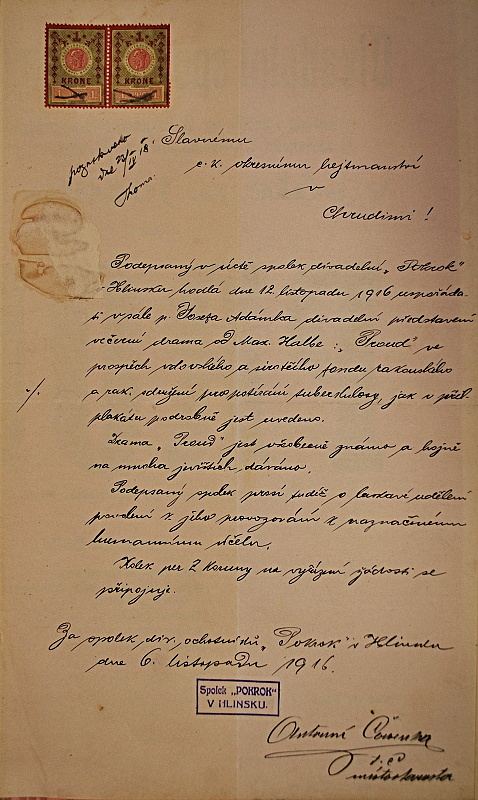 1 1
KRONE KRONE
Slavnému
c. k. okresnímu hejtmanství
v
Chrudimi!
Podepsaný v úctě spolek divadelní „Pokrok“
v Hlinsku hodlá dne 12. listopadu 1916 uspořáda-
ti v sále p. Josefa Adámka divadelní představení
večerní drama od Max. Halbe: „Proud“ ve
prospěch vdovského a sirotčího fondu rakouského
a rak. sdružení pro potírání tuberkulosy, jak v přil.
plakátu podrobně jest uvedeno.
Drama „Proud“ jest všeobecně známo a hojně
na mnoha jevištích dáváno.
Podepsaný spolek prosí tudíž o laskavé udělení
povolení k jeho provozování k naznačenému
humannímu účelu.
Kolek per 2 koruny na vyřízení žádosti se
připojuje.
Za spolek div. ochotníků „Pokrok“ v Hlinsku
dne 6. listopadu 1916.
Spolek „POKROK“
V HLINSKU.
Antonín
místostarosta